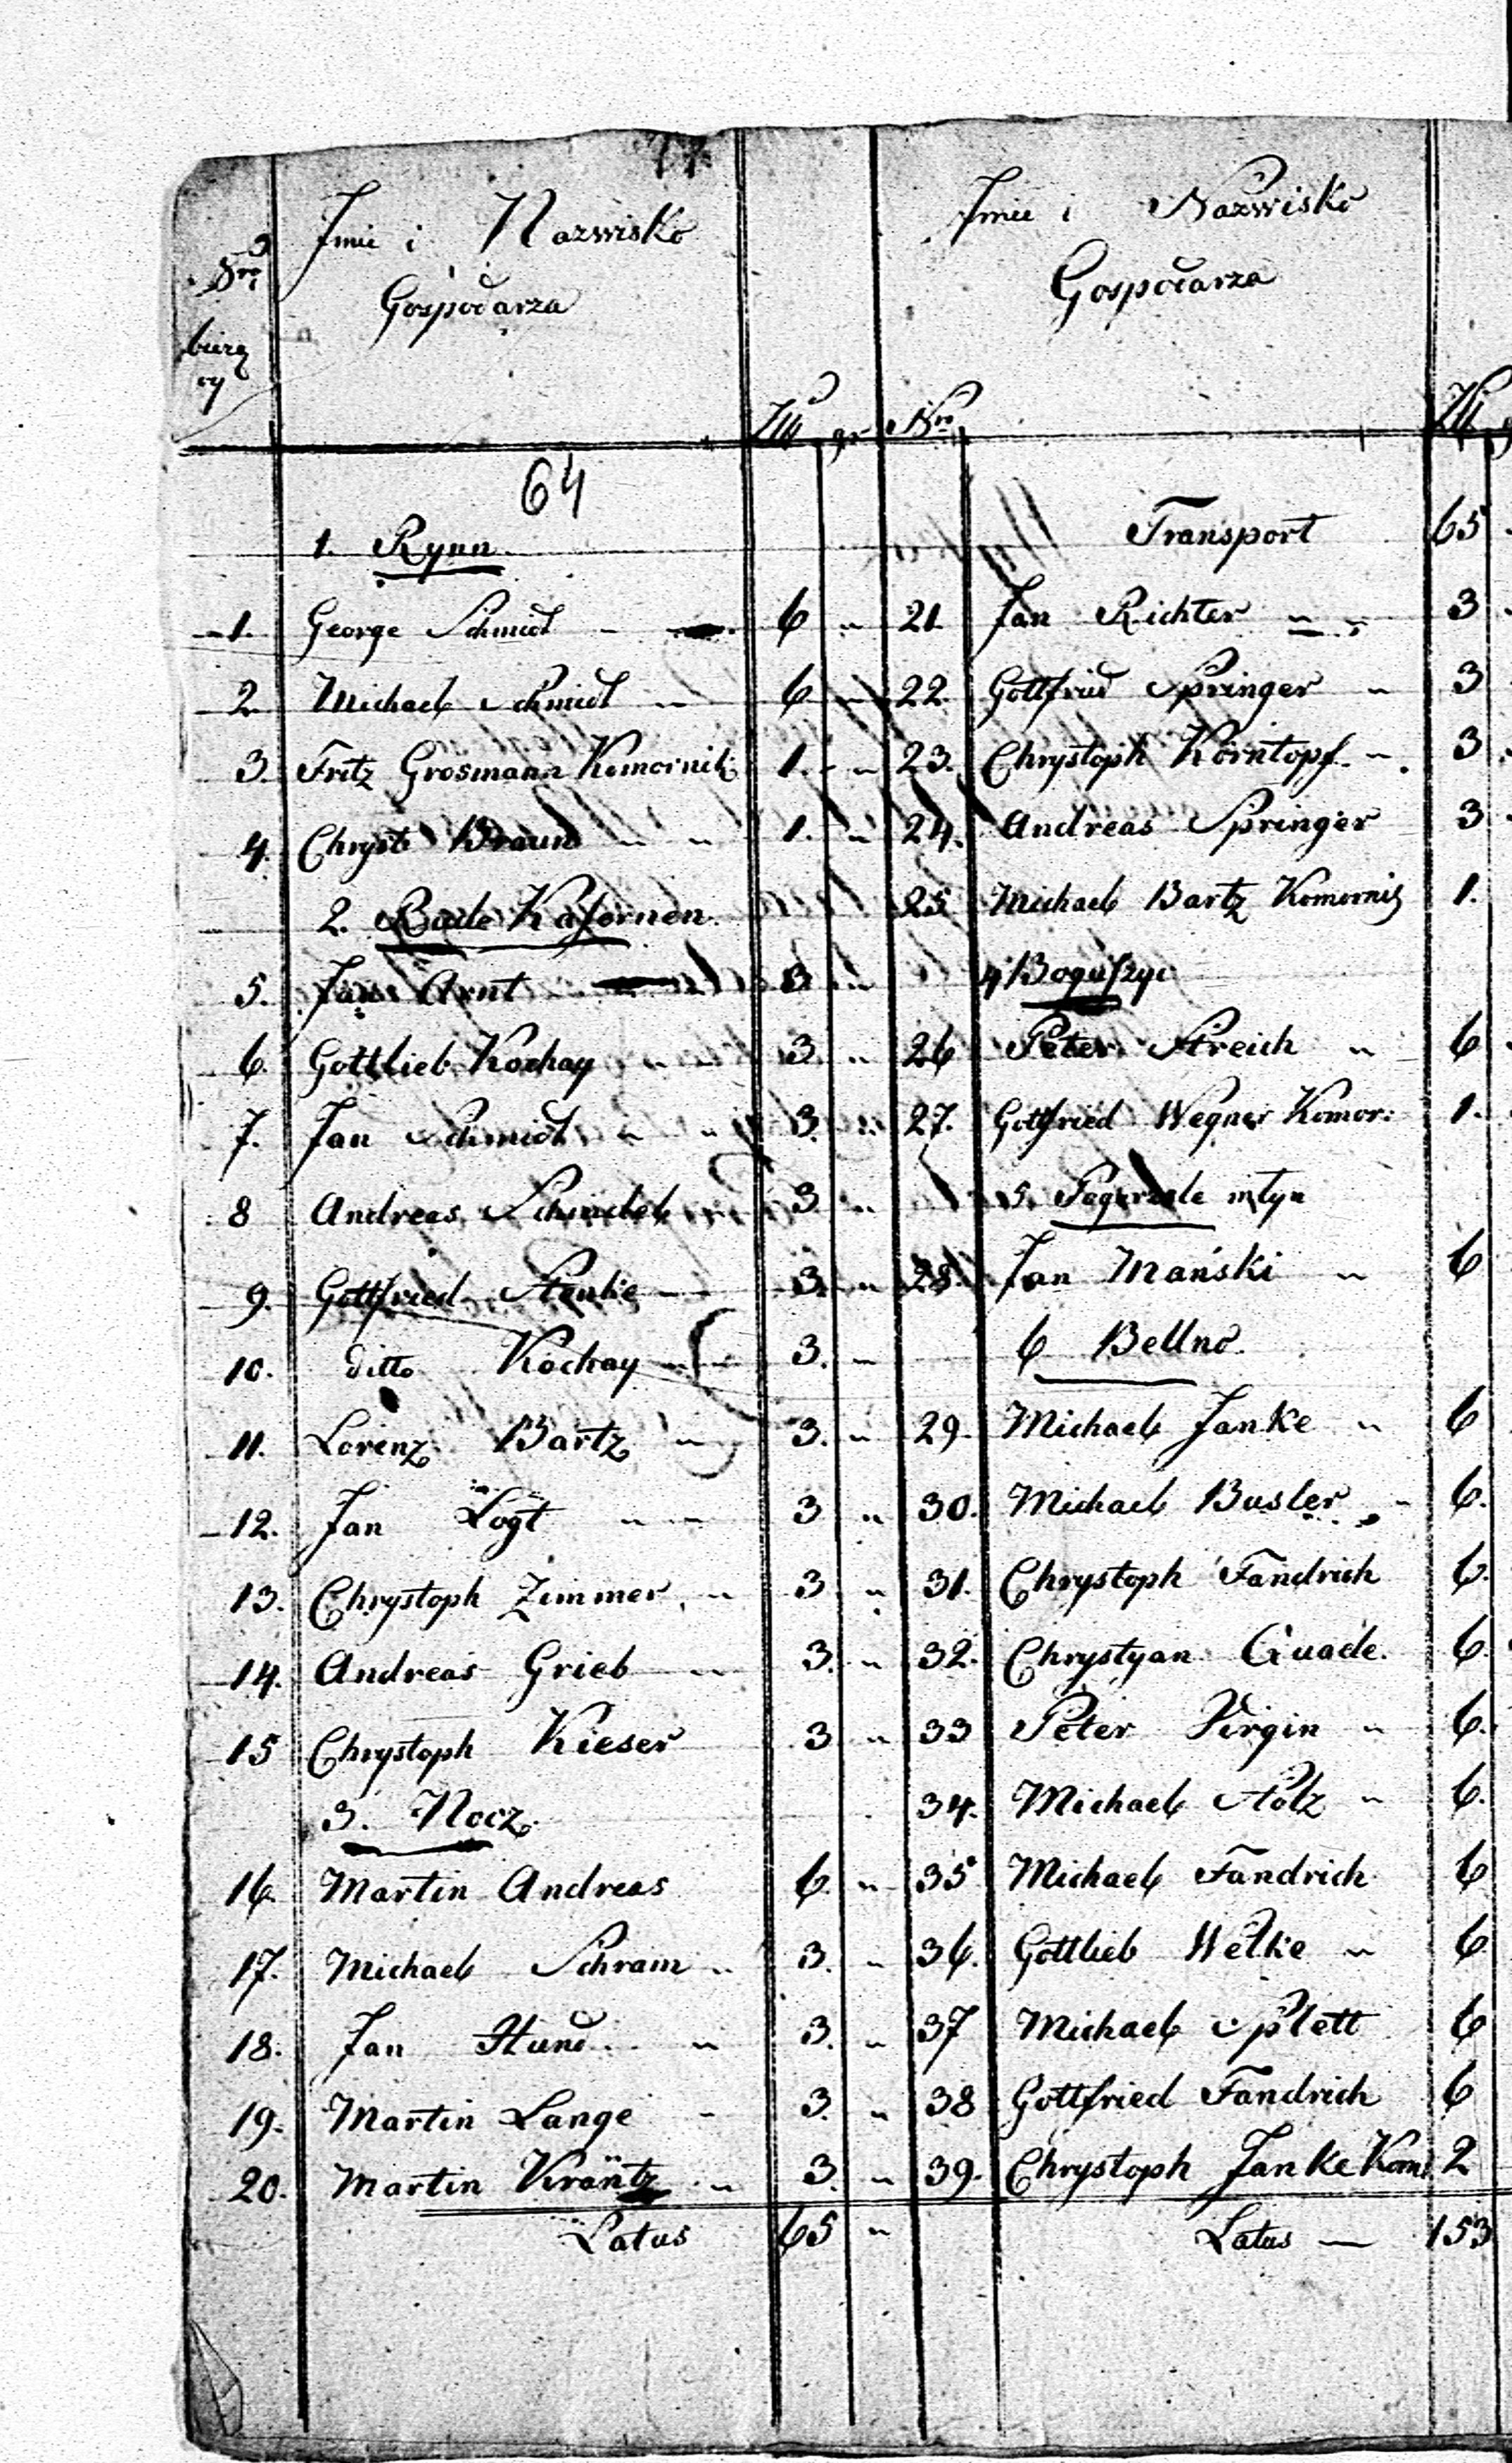 Imie i Nazwisko
Gospodarza
Złł gr
64
1. Rynn
1. George Schmidt 6 "
2. Michael Schmidt " 6 "
3. Fritz Grosmann Komornik 1. "
4. Chryst Braun " " 1. "
2. Rade Kasernen
5. Jan Arnt 3 "
6. Gottlieb Kochay " 3 "
7. Jan Schmidt " " 3. "
8 Andreas Schindel 3. "
9. Gottfried Stenke 3. "
10. ditto Kochay 3. "
11. Lorenz Bartz " 3. "
12. Jan Logt " " 3 "
13. Chrystoph Zimmer " 3 "
14. Andreas Grieb " 3. "
15 Chrystoph Kieser 3 "
3. Nocz
16. Martin Andreas 6. "
17. Michael Schram " 3. "
18. Jan Hund " 3. "
19. Martin Lange 3. "
20. Martin Kräntz " 3. "
Latus 65 "
Imie i Nazwisko
Gospodarza
Nro Złł
Transport 65
21. Jan Richter " " 3
22. Gottfried Springer " 3
23. Chrystoph Korntopf " 3
24. Andreas Springer 3
25 Michael Bartz Komornik 1.
4 Boguszyc
26 Peter Streich " 6
27. Gottfried Wegner Komor: 1.
5. młyn
28. Jan Mański " 6
6 Bellno.
29. Michael Janke " 6
30. Michael Busler 6.
31. Chrystoph Fandrich 6.
32. Chrystyan Quade. 6.
33 Peter Virgin " 6.
34. Michael Stolz " 6.
35 Michael Fandrich 6
36. Gottlieb Welke " 6
37 Michael Splett 6
38 Gottfried Fandrich 6
39. Chrystoph Janke Kom. 2
Latus — 153